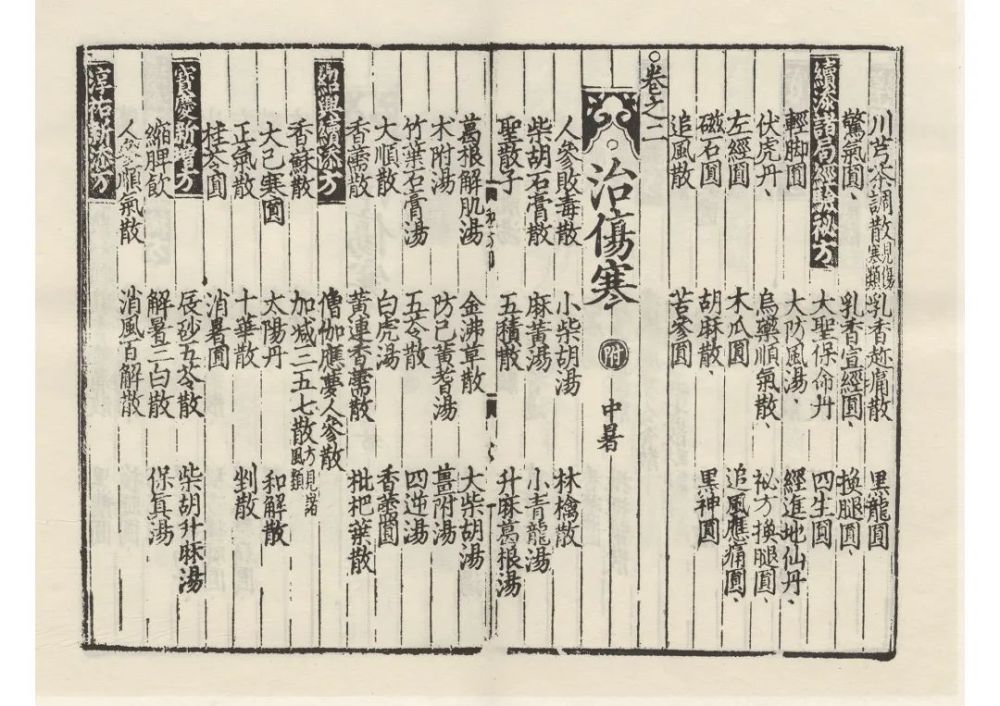 川芎茶調散見傷寒類 乳香趂痛散 黑龍圓
驚氣圓 乳香宣經圓 換腿圓
續添諸局經驗秘方 大聖保命丹 四生圓
輕脚圓 大防風湯 經進地仙丹
伏虎丹 烏藥順氣散 秘方換腿圓
左經圓 木瓜圓 追風應痛圓
磁石圓 胡麻散 黑神圓
追風散 苦參圓
卷之二
治傷寒 附 中暑
人參敗毒散 小柴胡湯 林檎散
柴胡石膏散 麻黃湯 小青龍湯
聖散子 五積散 升麻葛根湯
萬根解肌湯 金沸草散 大柴胡湯
术附湯 防己黃耆湯 薑附湯
竹葉石膏湯 五苓散 四逆湯
大順散 白虎湯 香薷圓
香薷散 黃連香薷散 枇杷葉散
紹興續添方 僧伽應夢人參散
香蘇散 加减三五七散方見諸風類
大已寒圓 太陽丹 和解散
正氣散 十華散 對散
桂苓圓 消暑圓
寶慶新增方 辰砂五苓散 柴胡升麻湯
縮脾飲 解暑三白散 保真湯
人參順氣散 消風百解散
淳祐新添方